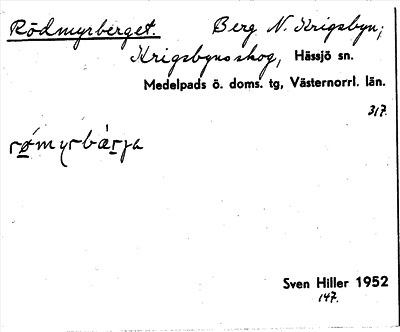 Rödmyrberget. Berg N. Krigsbyn;
Krigsbyns skog, Hässjö sn.
Medelpads ö. doms. tg, Västernorrl. län.
317.
rǿmyrbæ̀rja
Sven Hiller 1952
147.